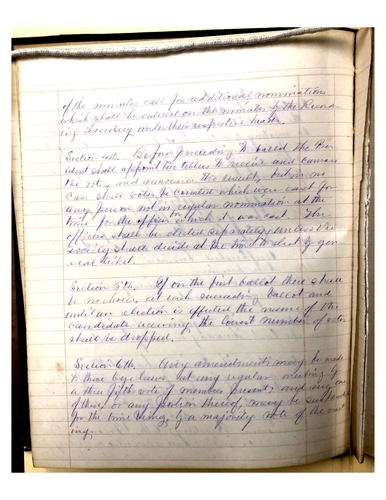 of the minutes call for additional nominations
which shall be entered on the minutes by the Record-
ing Secretary under their respective heads.
Section 4th. Before proceeding to ballot the Pres-
ident shall appoint two tellers to receive and canvass
the vote, and announce the result, but in no
case shall votes be counted which were cast for
any person not in regular nomination at the
time for the office for which it was cast. The
officers shall be elected separately, unless the
Society shall decide at the time to elect by gen-
eral ticket.
Section 5th. If on the first ballot there shall
be no choice, at each succeeding ballot and
until an election is effected the name of the
candidate receiving the lowest number of votes
shall be dropped.
Section 6th. Any amendments may be made
to these bye laws, at any regular meeting by
a three fifths vote of members present; and any one
of these, or any portion thereof, may be suspended
for the time being, by a majority vote of the meet-
ing.